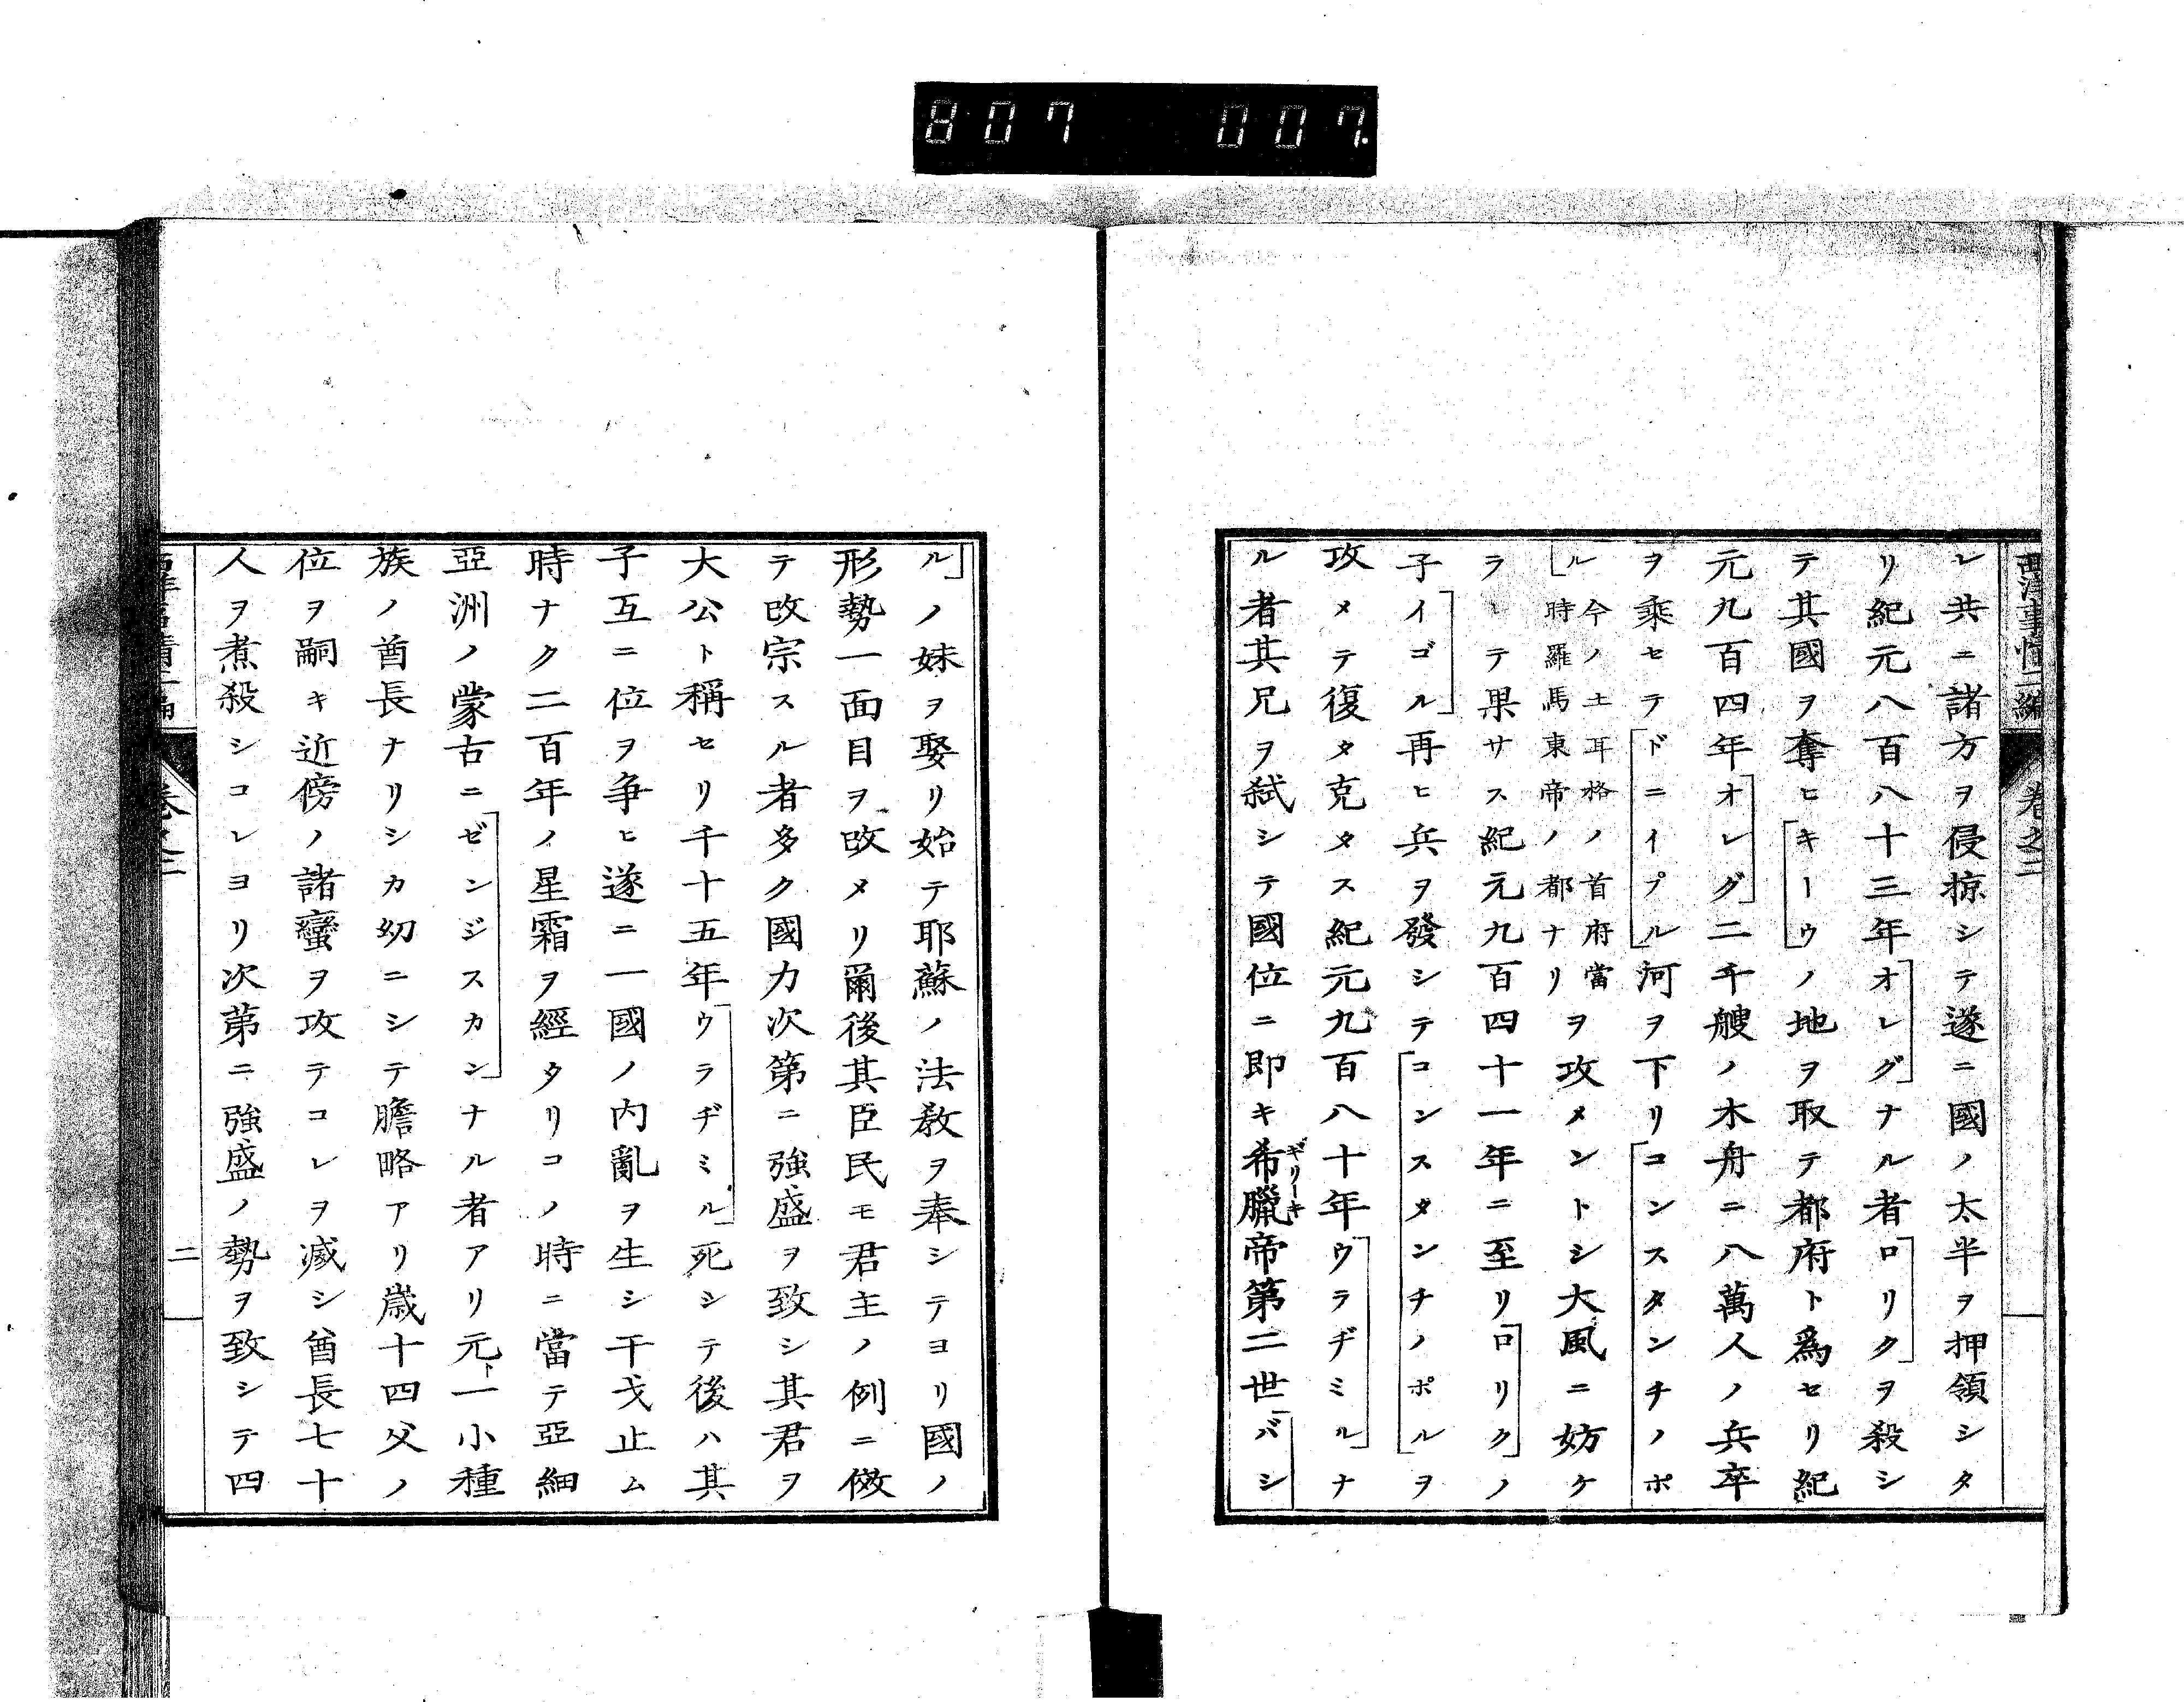 807 007.
西洋事情二編 卷之二
レ共ニ諸方ヲ侵掠シテ遂ニ國ノ太半ヲ押領シタ
リ紀元八百八十三年「オレグ」ナル者「ロリク」ヲ殺シ
テ其國ヲ奪ヒ「キーウ」ノ地ヲ取テ都府ト爲セリ紀
元九百四年「オレグ」二千艘ノ木舟ニ八萬人ノ兵卒
ヲ乘セテ「ドニイプル」河ヲ下リ「コンスタンチノポ
ル」今ノ土耳格ノ首府當時羅馬東帝ノ都ナリヲ攻メントシ大風ニ妨ケ
ラレテ果サス紀元九百四十一年ニ至リ「ロリク」ノ
子「イゴル」再ヒ兵ヲ發シテ「コンスタンチノポル」ヲ
攻メテ復タ克タス紀元九百八十年「ウラヂミル」ナ
ル者其兄ヲ弑シテ國位ニ即キ希臘帝第二世「バシ
ギリーキ
ル」ノ妹ヲ娶リ始テ耶蘇ノ法教ヲ奉シテヨリ國ノ
形勢一面目ヲ改メリ爾後其臣民モ君主ノ例ニ傚
テ改宗スル者多ク國力次第ニ強盛ヲ致シ其君ヲ
大公ト稱セリ千十五年「ウラヂミル」死シテ後ハ其
子互ニ位ヲ争ヒ遂ニ一國ノ内亂ヲ生シ干戈止ム
時ナク二百年ノ星霜ヲ經タリコノ時ニ當テ亞細
亞洲ノ蒙古ニ「ゼンジスカン」ナル者アリ元ト一小種
族ノ酋長ナリシカ幼ニシテ膽略アリ歳十四父ノ
位ヲ嗣キ近傍ノ諸蠻ヲ攻テコレヲ滅シ酋長七十
人ヲ煮殺シコレヨリ次第ニ強盛ノ勢ヲ致シテ四
西洋事情二編 卷之二 二